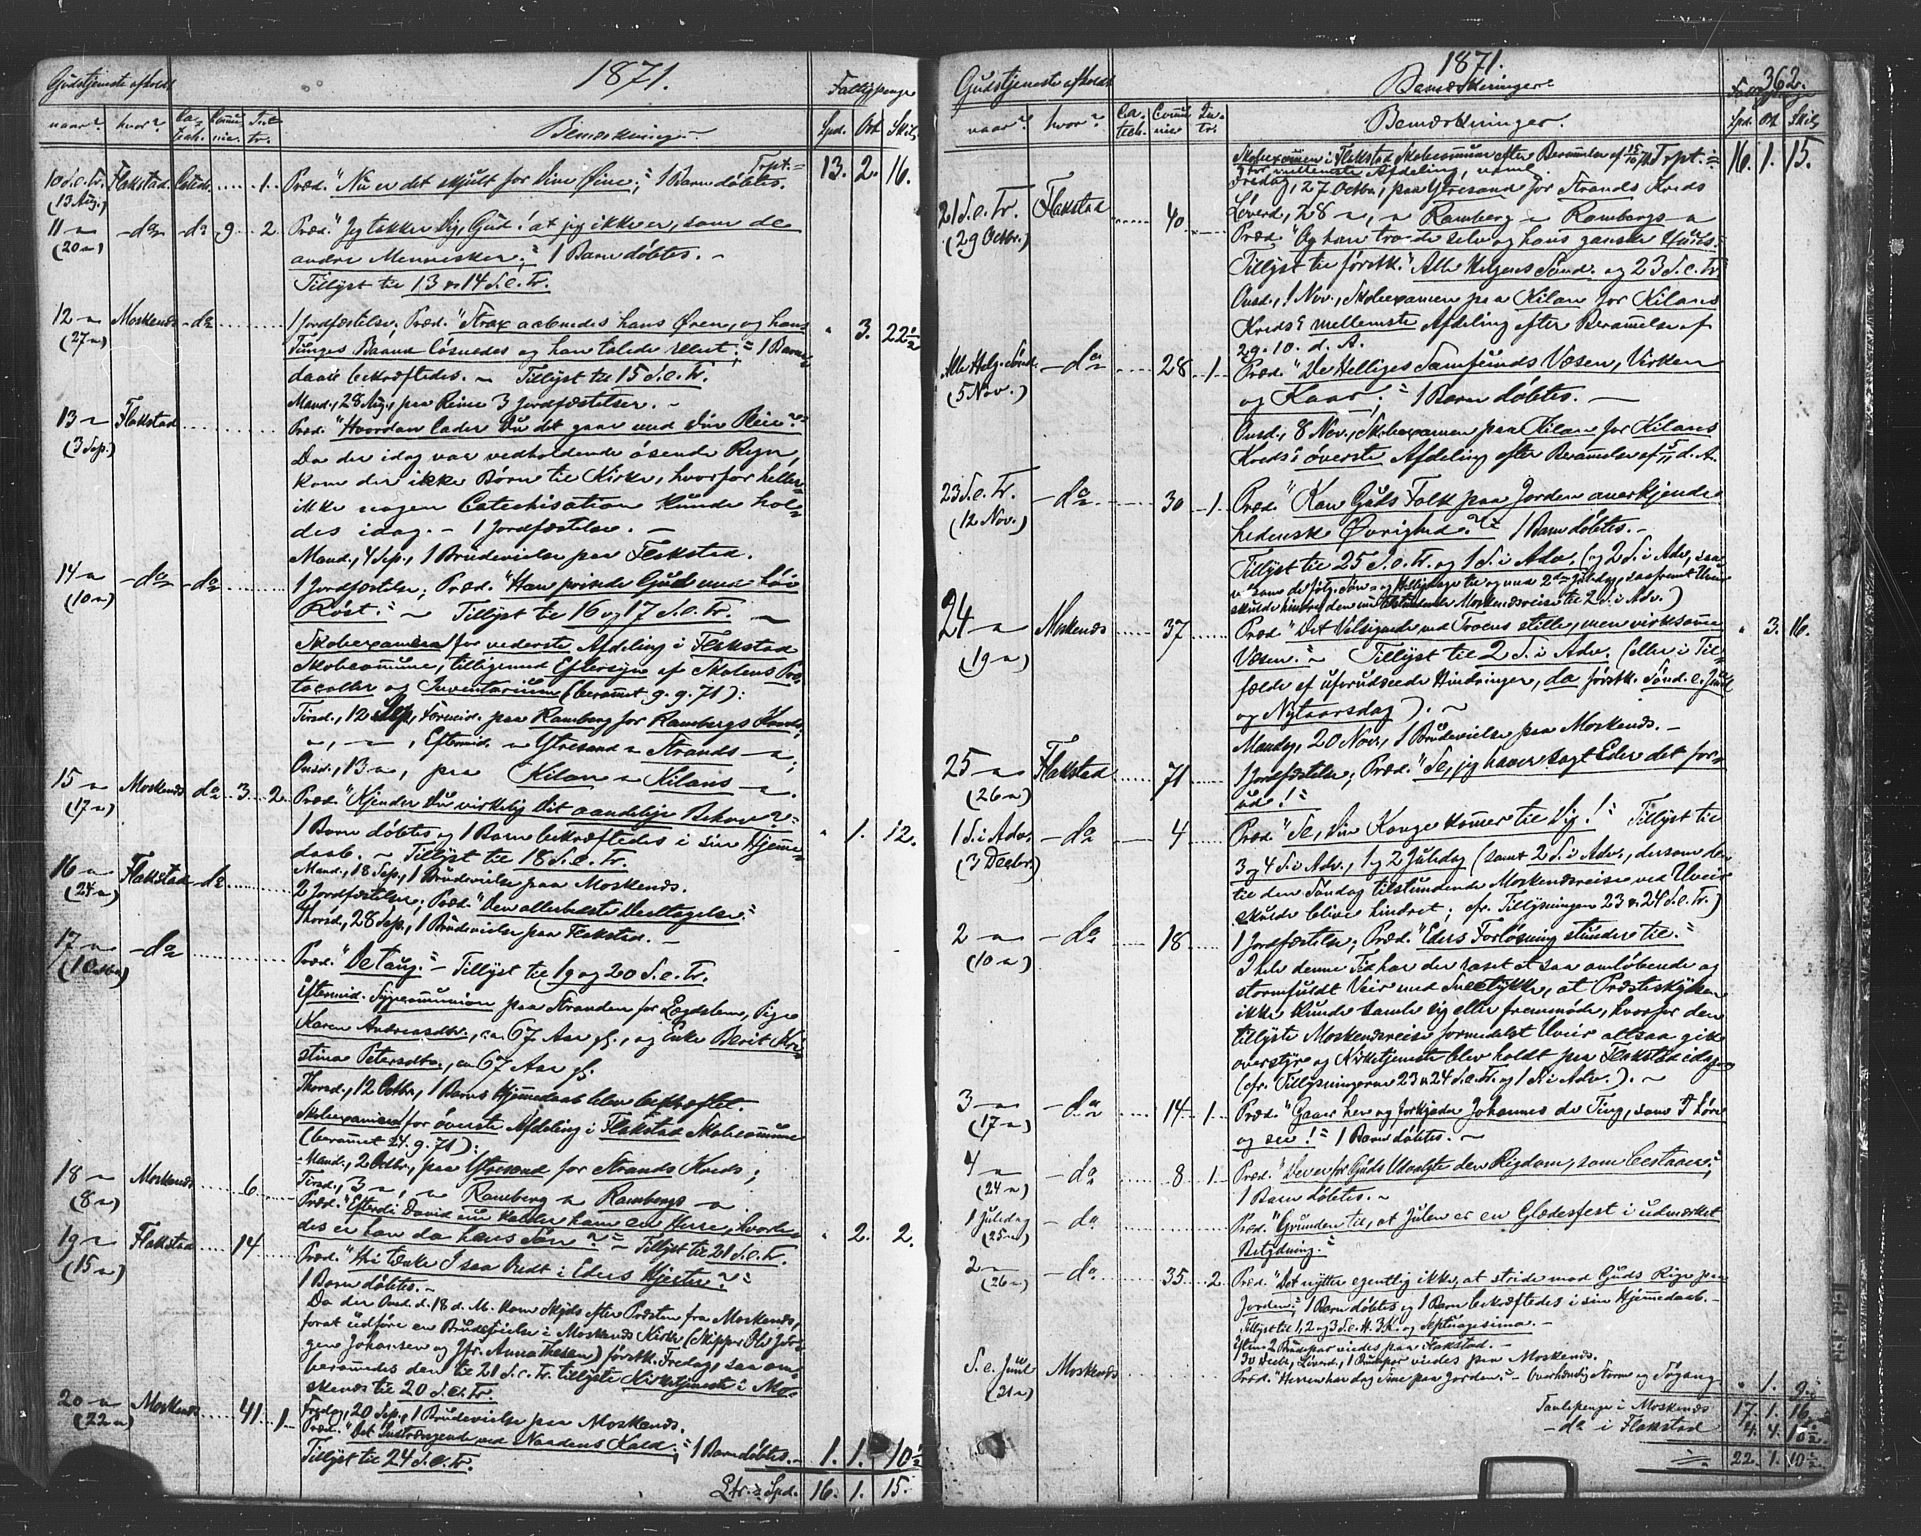 1871.
Gudstjeneste afholdt
Fattigpenge
naar? hvor? Ca- tech. Commu- nic. Int- tr. Bemærkninger Spd. Ort Skil.
Trpt. = 13. 2. 16.
10 S.e.Tr. Flakstad. Catech. 1. Præd. "Nu er det skjult for Dine Øine;" 1 Barn døbtes.
(13 Aug.)
11 " -do- -do 9 2. Præd. "Jeg takker Dig, Gud! at jeg ikke er, som de
(20 ")
andre Mennesker;" 1 Barn døbtes. -
Tillyst til 13 & 14 S.e.Tr.
12 " Moskenæs -do 1 Jordfæstelse; Præd. "Strax aabnedes hans Øren, og hans " 3. 22½
(27 ")
Tunges Baand løsnedes og han talede ret;" 1 Barne-
daab bekræftedes. - Tillyst til 15 S.e.Tr.
Mand., 28 Aug., paa Reine 3 Jordfæstelser. -
13 " Flakstad Præd. "Hvordan lader Du det gaar med Din Rein?"
(3 Sep.)
Da der idag var vedholdende øsende Regn,
kom der ikke Børn til Kirke, hvorfor heller
ikke nogen Catechisation kunde hol-
des idag. - 1 Jordfæstelse. -
Mand., 4 Sep., 1 Brudevielse paa Flakstad.
14 " -do- -do 1 Jordfæstelse; Præd. "Han prisede Gud med høi
(10 ")
Røst." - Tillyst til 16 og 17 S.e.Tr. -
Skoleexamen for nederste Afdeling i Flakstad
Skolecommune, tilligemed Eftersyn af Skolens Pro-
tocoller og Inventarium (beramet 9.9.71):
Tirsd., 12 Sep., Formid. paa Ramberg for Rambergs Kreds;
", - ", Eftermid. " Ytresand " Strands ";
Onsd., 13 ", paa Kilan " Kilans ".
15 " Moskenæs do 3. 2. Præd. "Kjender Du virkelig Dit aandelige Behov?"
(17 ")
1 Barn døbtes og 1 Barn bekræftedes i sin Hjemme- " 1. 12.
daab. - Tillyst til 18 S.e.Tr.
Mand., 18 Sep., 1 Brudevielse paa Moskenæs.
16 " Flakstad do 2 Jordfæstelser; Præd. "Den allerbedste Deeltagelse."
(24 ")
Thorsd., 28 Sep., 1 Brudevielse paa Flakstad. -
17 " -do Præd. "Detaug." - Tillyst til 19 og 20 S.e.Tr.
(1 Octbr)
Eftermid. Sygecommunion paa Stranden for Lægdslem, Pige
Karen Andreasdtr., ca 67 Aar gl., og Enke Berit Kri-
stina Petersdtr., ca 67 Aar gl.
Thorsd., 12 Octbr., 1 Barns Hjemmedaab blev bekræftet.
Skoleexamen for øverste Afdeling i Flakstad Skolecommune
(beramet 24.9.71):
Mand., 2 Octbr., paa Ytresand for Strands Kreds;
18 " Moskenæs 6 Tirsd., 3 ", " Ramberg " Rambergs "
(8 ")
Præd. "Efterdi David nu kalder ham en Herre, hvorle-
des er han da hans Søn?" - Tillyst til 21 S.e.Tr. " 2. 2.
19 " Flakstad 14. Præd. "Hvi tænke I saa Ondt i Eders Hjerter?"
(15 ")
1 Barn døbtes. -
Da der Onsd. d. 18 d. M. kom Skyds efter Præsten fra Moskenæs,
forat udføre en Brudevielse i Moskenæs Kirke (Skipper Ole Jør-
gen Johansen og Jfr. Anna Thesen) førstk. Fredag, saa om-
beramedes den til 21 S.e.Tr. tillyste Kirketjeneste i Mo-
skenæs til 20 S.e.Tr.
Fredag, 20 Sep., 1 Brudevielse paa Moskenæs.
20 " Moskenæs 41. 1. Præd. "Det Indtrængende ved Naadens Kald;" 1 Barn døbtes. - 1. 1. 10½
(22 ")
Tillyst til 24 S.e.Tr.
Ltr. = Spd. 16. 1. 15.
1871.
362.
Gudstjeneste afholdt Bemærkninger. Fattigpenge
naar? hvor? Ca- tech. Commu- nic. In- tr. Bemærkninger. Spd. Ort Skil.
Skoleexamen i Flakstad Skolecommune efter Berammelse af 15/10 71 Trpt. = 16. 1. 15.
for mellemste Afdeling, nemlig
Fredag, 27 Octbr., paa Ytresand for Strands Kreds
21 S.e.Tr. Flakstad 40 Løverd., 28 ", " Ramberg " Rambergs "
(29 Octbr.)
Præd. "Og han troede selv og hans ganske Huus."
Tillyst til førstk. "Alle Helgens Sønd. og 23 S.e.Tr.
Onsd., 1 Nov., Skoleexamen paa Kilan for Kilans
Kreds' mellemste Afdeling efter Berammelse af
29.10. d. A.
Alle Helg. Sønd. -do 28 1. Præd. "De Helliges Samfunds Væsen, Virken
(5 Nov.)
og Kaar;" 1 Barn døbtes. -
Onsd., 8 Nov., Skoleexamen paa Kilan for Kilans
Kreds' øverste Afdeling efter Berammelse af 5/11 d. A.
23 S.e.Tr. -do 30 1. Præd. "Kan Guds Folk paa Jorden anerkjende
(12 Nov.)
hedensk Øvrighed?" 1 Barn døbtes. -
Tillyst til 25 S.e.Tr. og 1 S. i Adv. (og 2 S. i Adv., saa-
vel som de følg. Søn- og Helligdage til og med 2den Juledag, saafremt Uveir
skulde hindre den nu tilstundende Moskenæsreise til 2 S. i Adv.)
24 " Moskenæs 37 Præd. "Det Velsignede ved Troens stille, men virksomme " 3. 16.
(19 ")
Væsen." - Tillyst til 2 S. i Adv. (eller i Til-
fælde af uforudseede Hindringer, da førstk. Sønd. e. Juul
og Nytaarsdag). -
Mandag, 20 Nov., 1 Brudevielse paa Moskenæs. -
25 " Flakstad 71 1 Jordfæstelse; Præd. "Se, jeg haver sagt Eder det for-
(26 ")
ud!"
1 S. i Adv. -do 4 Præd. "Se, Din Konge kommer til Dig!" Tillyst til
(3 Decbr.)
3 og 4 S. i Adv., 1 og 2 Juledag (samt 2 S. i Adv., dersom den
til den Søndag tilstundende Moskenæsreise ved Uveir
skulde blive hindret; cfr. Tillysningen 23 & 24 S.e.Tr.)
2 " -do 18 1 Jordfæstelse; Præd. "Eders Forløsning stunder til."
(10 ")
I hele denne Tid har der raset et saa omløbende og
stormfuldt Veir med Sneetykke, at Præsteskydsen
ikke kunde samle sig eller fremmøde, hvorfor den
tillyste Moskenæsreise formedelst Uveir altsaa gik
overstyr og Kirketjeneste blev holdt paa Flakstad idag
(cfr. Tillysningerne 23 & 24 S.e.Tr. og 1 S. i Adv.). -
3 " -do 14 1. Præd. "Gaaer hen og forkynder Johannes de Ting, som I høre
(17 ")
og see!" 1 Barn døbtes. -
4 " -do 8 1. Præd. "Der er for Guds Udvalgte den Rigdom, som bestaaer;"
(24 ")
1 Barn døbtes. -
1 Juledag -do Præd. "Grunden til, at Julen er en Glædesfest i udmærket
(25 ")
Betydning."
2 " -do 35 2 Præd. "Det nytter egentlig ikke, at stride mod Guds Rige paa
(26 ")
Jorden;" 1 Barn døbtes og 1 Barn bekræftedes i sin Hjemmedaab. -
Tillyst til 1, 2 og 3 S.e. H. 3 K. og Septuagesima. -
2 Brudepar viedes paa Flakstad. -
S. e. Juul Moskenæs 30 Decbr., Løverd., 1 Brudepar viedes paa Moskenæs.
(31 ")
Præd. "Herren har dog Sine paa Jorden." - Overhændig Storm og Søgang " 1.
Tavlepenge i Moskenæs 17. 1. 16.
-do i Flakstad 4. 4. 10½.
22. 1. 10½